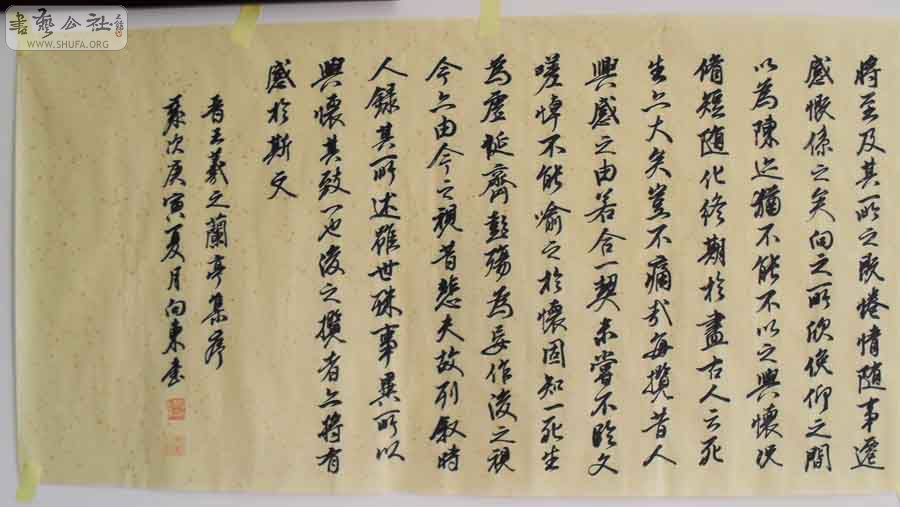 將至及其所之既惓情随事遷
感慨係之矣向之所欣俛仰之間
以為陳迹猶不能不以之興懷况
脩短随化終期於盡古人云死
生亦大矣豈不痛哉每攬昔人
興感之由若合一契未嘗不臨文
嗟悼不能喻之於懷固知一死生
為虛誕齊彭殤為妄作後之視
今亦由今之視昔悲夫故列叙時
人錄其所述雖世殊事異所以
興懷其致一也後之攬者亦將有
感於斯文
晋王羲之蘭亭集序
歲次庚寅夏月向東書
書藝公社
WWW.SHUFA.ORG